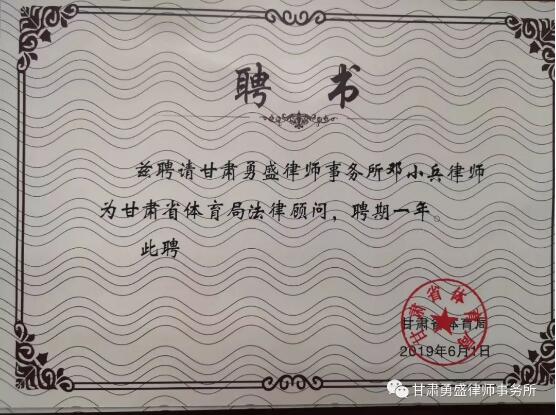 聘 书
兹聘请甘肃勇盛律师事务所邓小兵律师
为甘肃省体育局法律顾问，聘期一年。
此聘
甘肃省体育局
甘肃省体育局
2019年6月1日
甘肃勇盛律师事务所